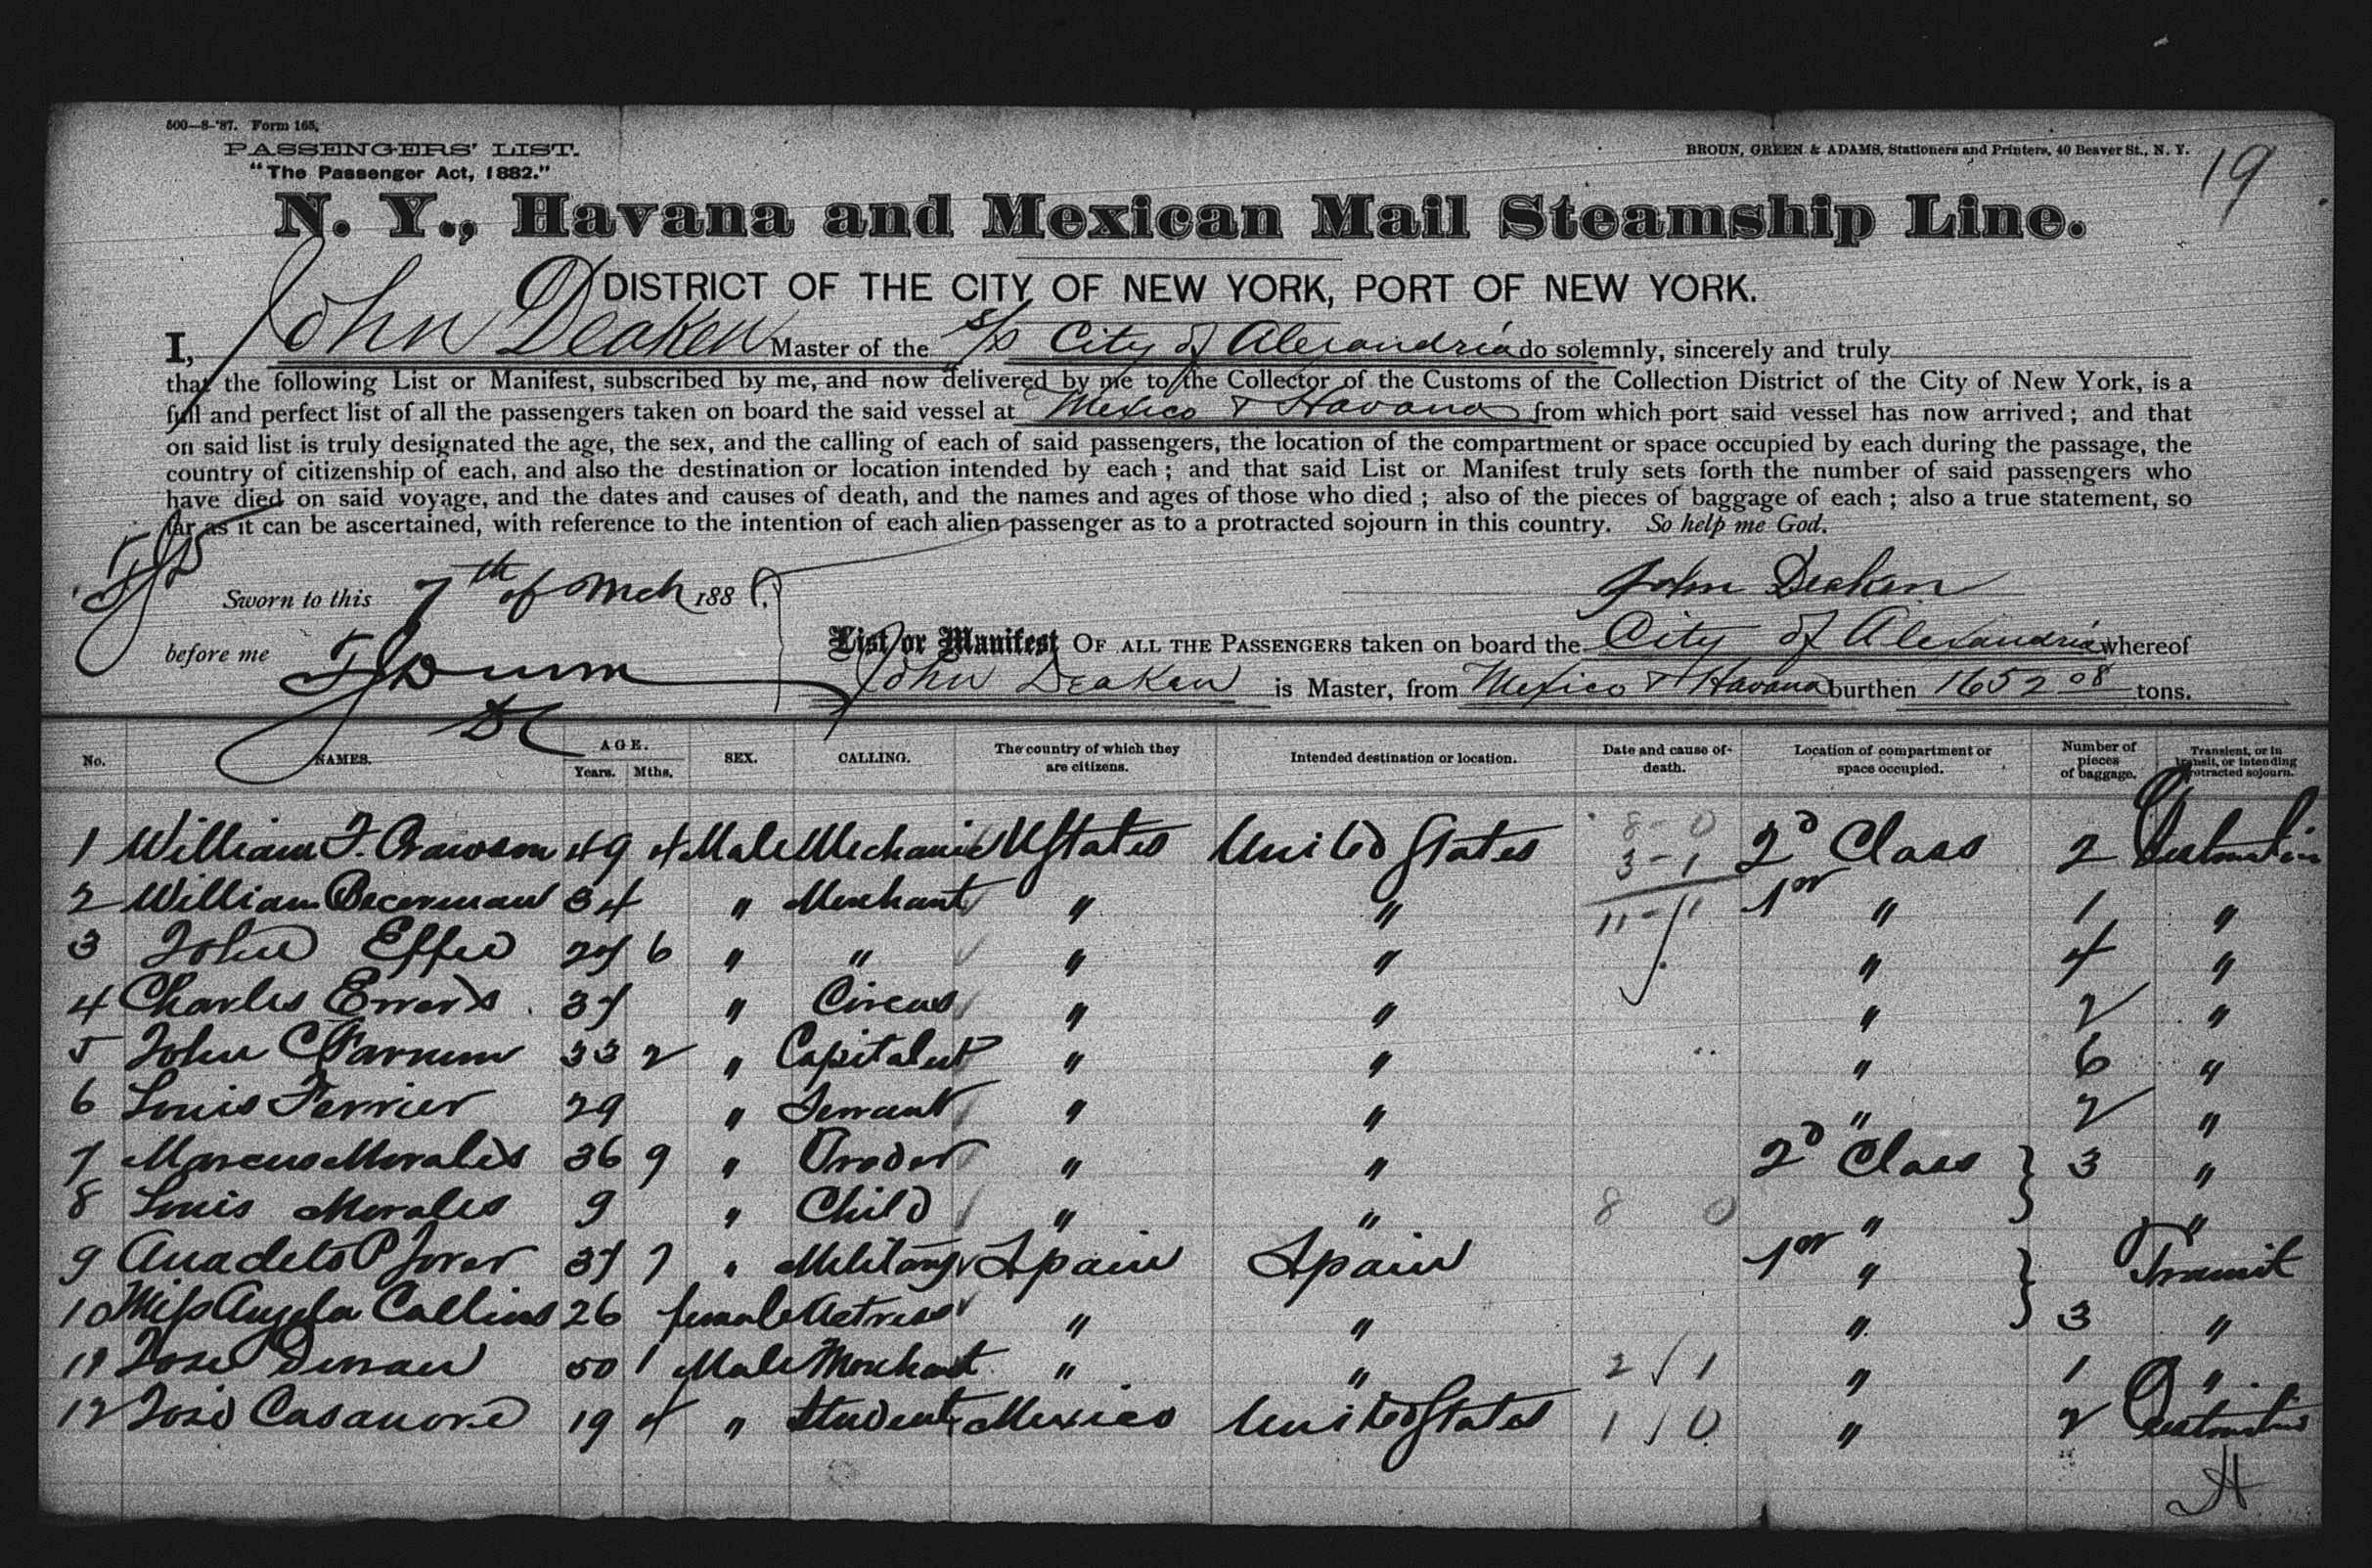 500—8–'87. Form 165.
PASSENGERS' LIST.
"The Passenger Act, 1882."
BROUN, GREEN & ADAMS, Stationers and Printers, 40 Beaver St., N. Y.
19
N. Y., Havana and Mexican Mail Steamship Line.
DISTRICT OF THE CITY OF NEW YORK, PORT OF NEW YORK.
I, John Deaken Master of the S/S City of Alexandria do solemnly, sincerely and truly
that the following List or Manifest, subscribed by me, and now delivered by me to the Collector of the Customs of the Collection District of the City of New York, is a
full and perfect list of all the passengers taken on board the said vessel at Mexico & Havana from which port said vessel has now arrived; and that
on said list is truly designated the age, the sex, and the calling of each of said passengers, the location of the compartment or space occupied by each during the passage, the
country of citizenship of each, and also the destination or location intended by each; and that said List or Manifest truly sets forth the number of said passengers who
have died on said voyage, and the dates and causes of death, and the names and ages of those who died; also of the pieces of baggage of each; also a true statement, so
far as it can be ascertained, with reference to the intention of each alien passenger as to a protracted sojourn in this country. So help me God.
Sworn to this 7th of Mch 188
John Deaken
before me
List or Manifest OF ALL THE PASSENGERS taken on board the City of Alexandria whereof
John Deaken is Master, from Mexico & Havana burthen 1652 08 tons.
No. NAMES. AGE. Years. Mths. SEX. CALLING. The country of which they are citizens. Intended destination or location. Date and cause of death. Location of compartment or space occupied. Number of pieces of baggage. Transient, or in transit, or intending protracted sojourn.
1 William F. Crawson 49 4 Male Mechanic UStates United States 8-0 3-1 2d Class 2 Destination
2 William Becerman 34 " Merchant " " 11-11 1st " 1 "
3 John Effee 27 6 " " " " " 4 "
4 Charles Errors 37 " Circus " " " 2 "
5 John C Farnum 33 2 " Capitalist " " " 6 "
6 Louis Ferrier 29 " Servant " " " 2 "
7 Marcus Morales 36 9 " Trader " " 2d Class 3 "
8 Louis Morales 9 " Child " " 8 0 " "
9 Anacleto P Jover 37 7 " Military Spain Spain 1st " Transit
10 Miss Angela Callins 26 female Actress " " " 3 "
11 Jose Durran 50 1 Male Merchant " " 2 / 1 " 1 "
12 José Casanova 19 4 " Student Mexico United States 1 / 0 " 2 Destination